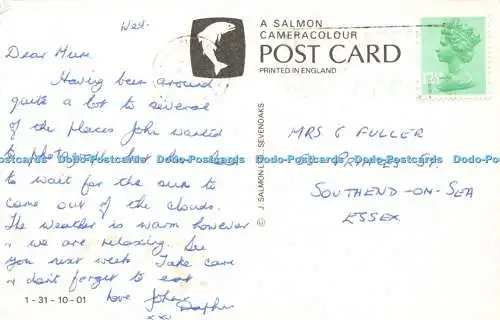 Wed.
Dear Mum
Having been around
quite a lot to several
of the places John wanted
to photograph but has had
to wait for the sun to
come out of the clouds.
The weather is warm however
& we are relaxing. See
you next week. Take care
& don't forget to eat
love John &
Daphne
xxx
1-31-10-01
© J. SALMON LTD., SEVENOAKS
A SALMON
CAMERACOLOUR
POST CARD
PRINTED IN ENGLAND
MRS G FULLER
PRINCES ST
SOUTHEND-ON-SEA
ESSEX
Dodo-Postcards.com